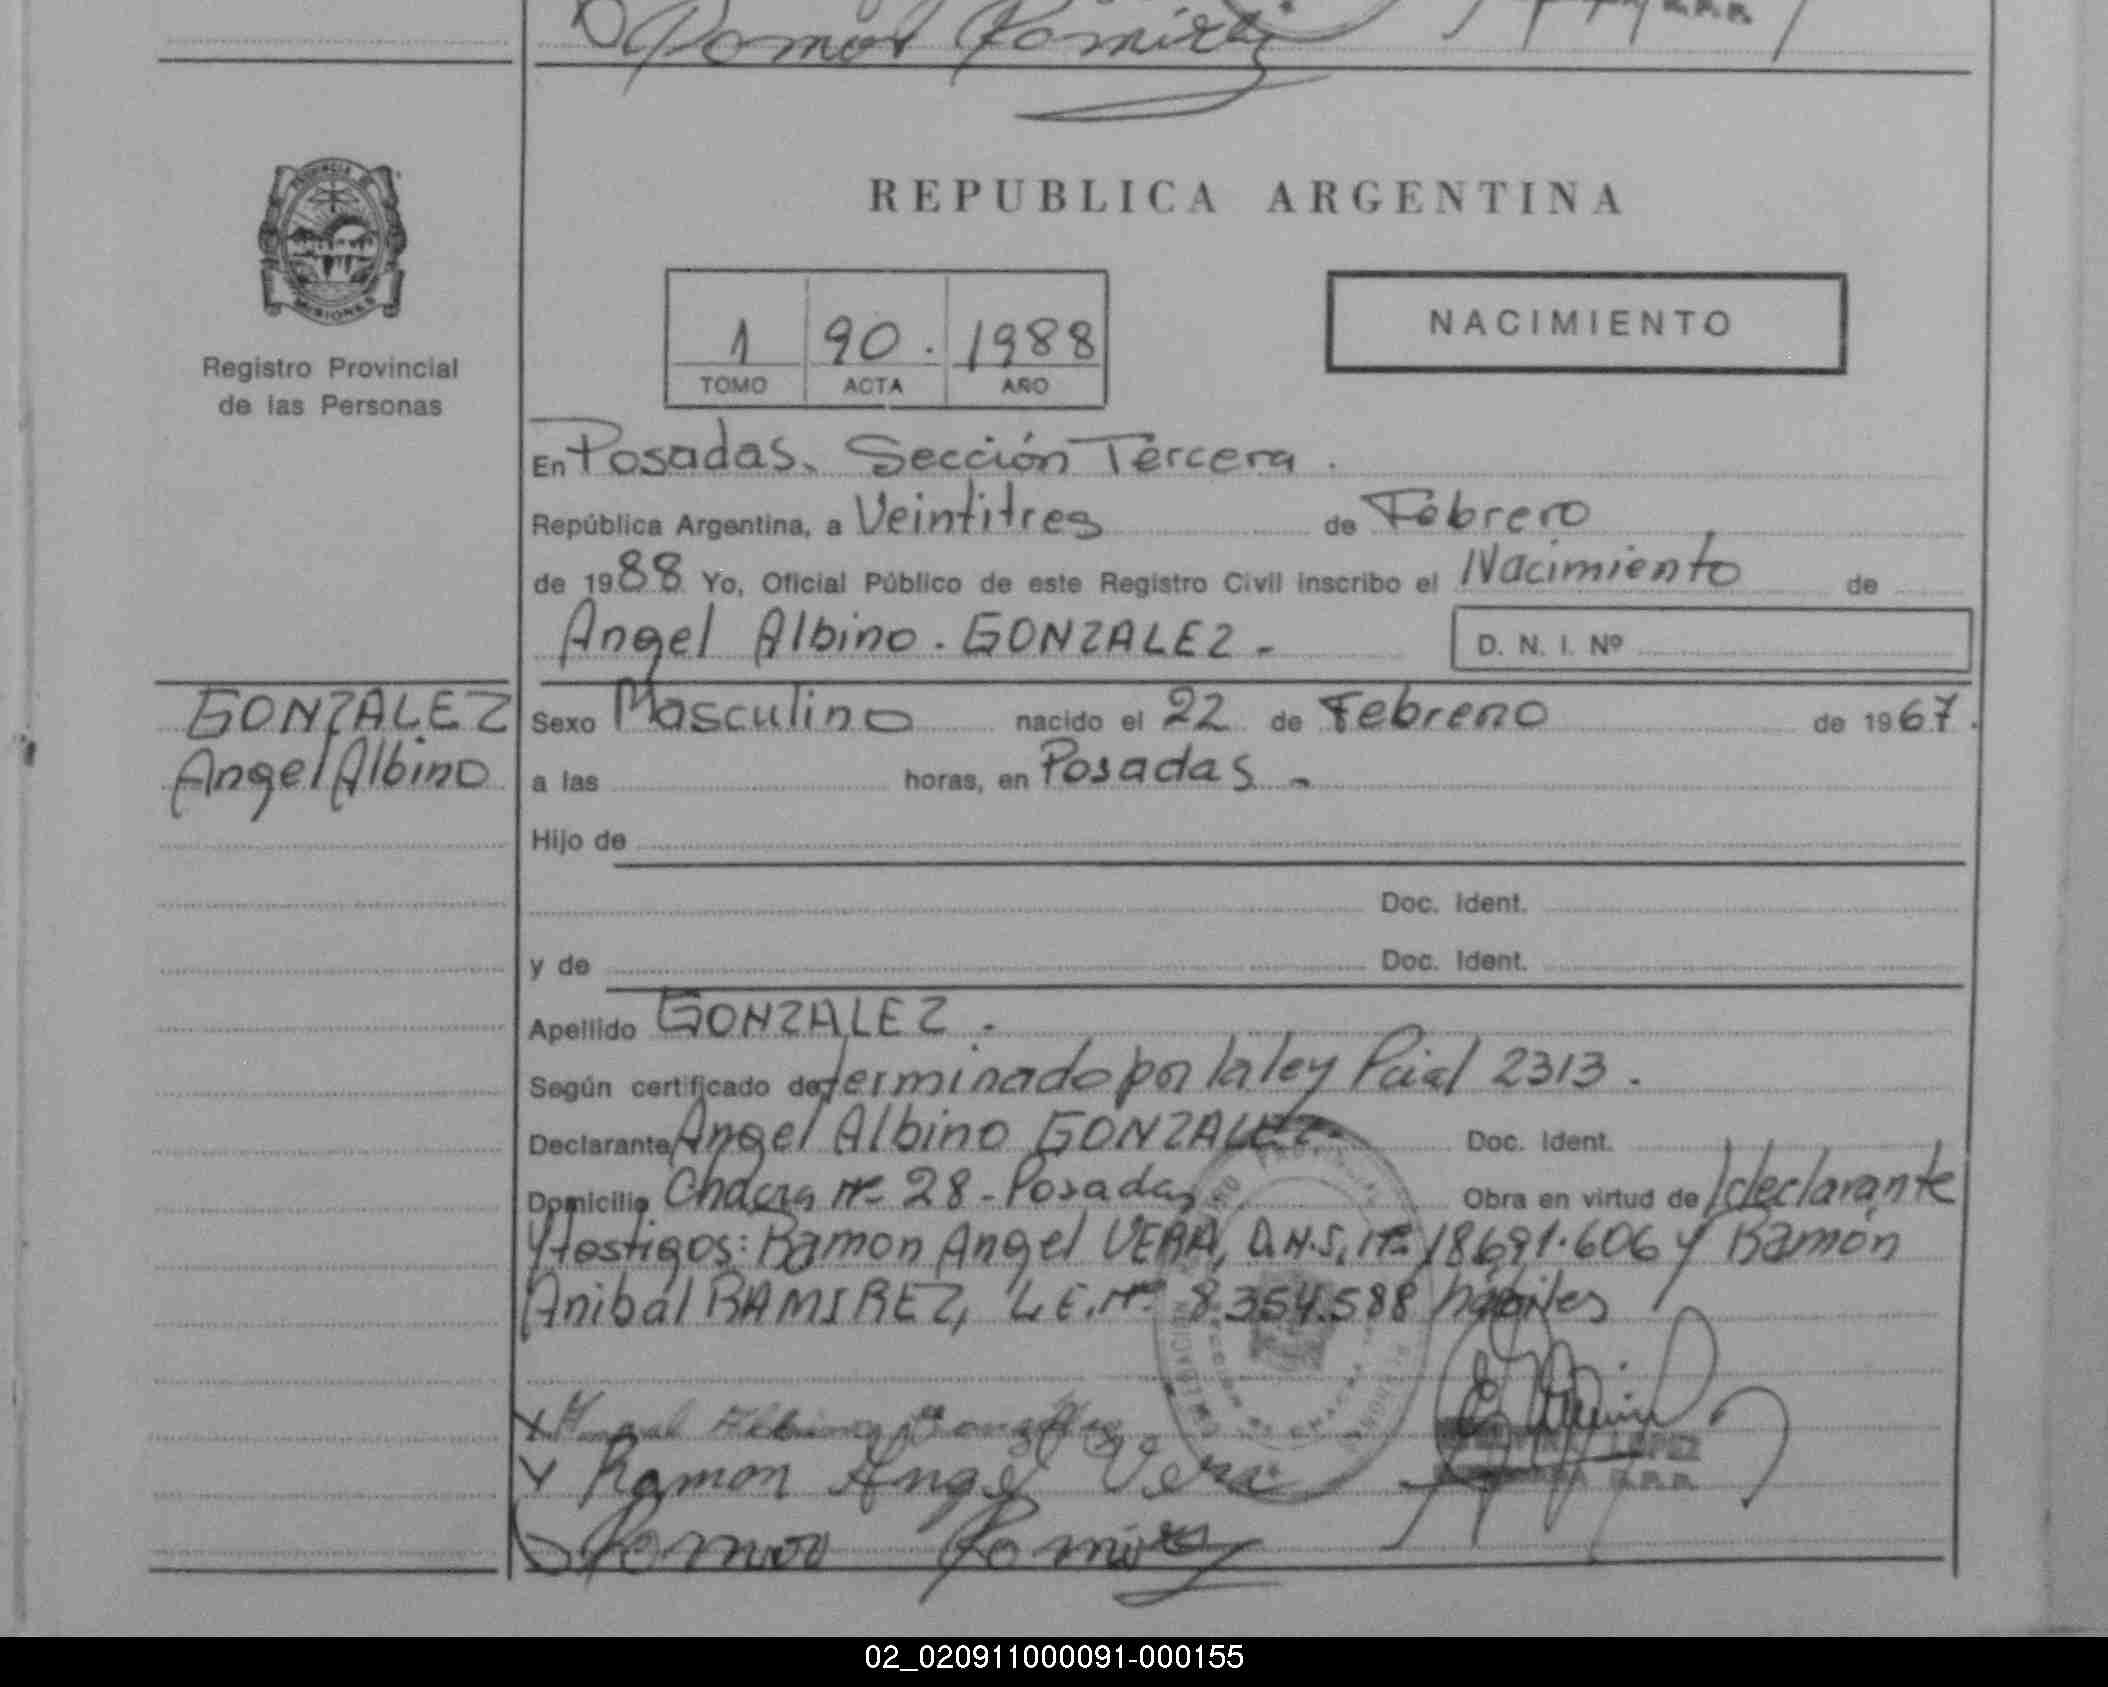 Ramirez
REPUBLICA ARGENTINA
MISIONES
Registro Provincial
de las Personas
1 90. 1988
TOMO ACTA AÑO
NACIMIENTO
En Posadas. Sección Tercera.
República Argentina, a Veintitres de Febrero
de 1988 Yo, Oficial Público de este Registro Civil inscribo el Nacimiento de
Angel Albino. GONZALEZ.-
D. N. I. Nº
GONZALEZ
Angel Albino
Sexo Masculino nacido el 22 de Febrero de 1967.
a las horas, en Posadas.-
Hijo de
Doc. Ident.
y de Doc. Ident.
Apellido GONZALEZ.
Según certificado determinado por la ley Pcial 2313.
Declarante Angel Albino GONZALEZ.- Doc. Ident.
Domicilio Chacra Nº 28-Posadas Obra en virtud de /declarante
y testigos: Ramon Angel VERA, D.N.I. Nº 18691.606 y Ramón
Anibal RAMIREZ, L.E. Nº 8.354.588 hábiles
X Albino Gonzalez
Ramon Angel Vera
LOPEZ
Ramirez
02_020911000091-000155